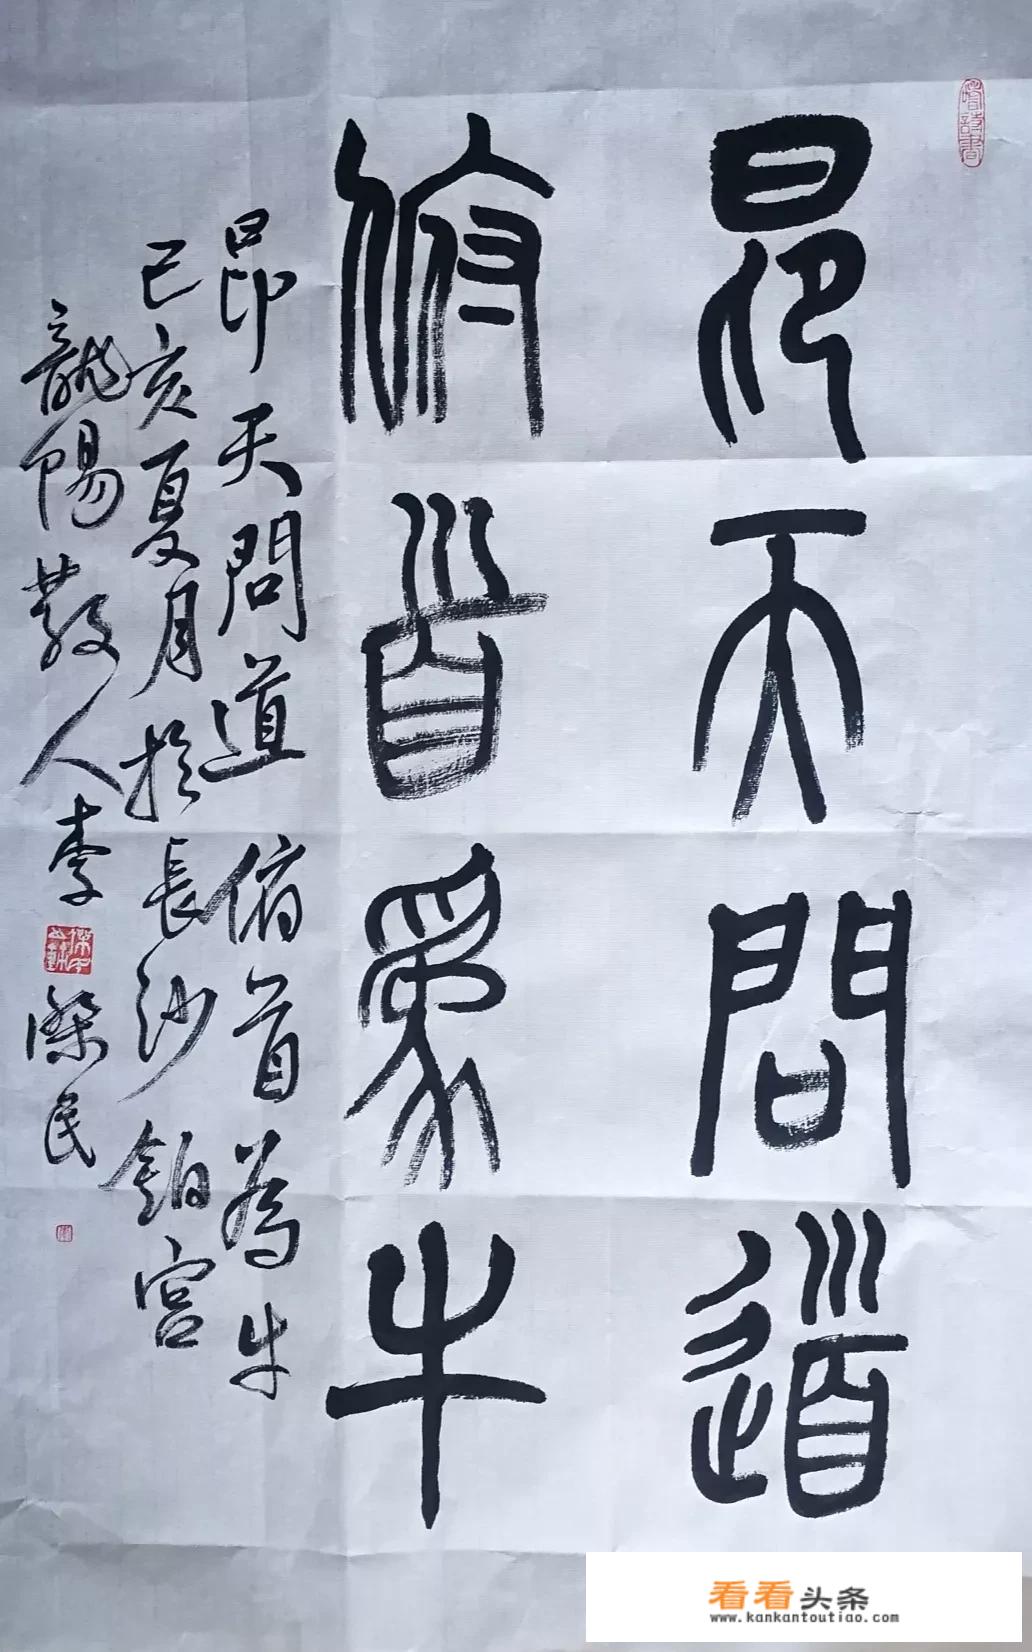 昂天問道
俯首為牛
昂天問道 俯首為牛
己亥夏月於長沙鉑宮
龍陽散人李傑民
看看头条
www.kankantoutiao.com